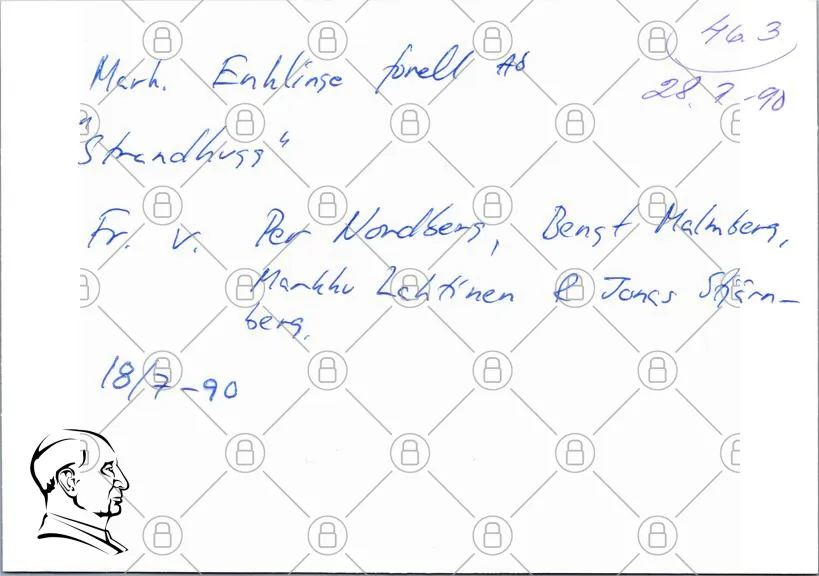 46.3
28.7-90
Marh. Enklinge forell Ab
"Strandhugg"
Fr. v. Per Nordberg, Bengt Malmberg,
Markku Lahtinen & Jonas Stjärn-
berg.
18/7-90